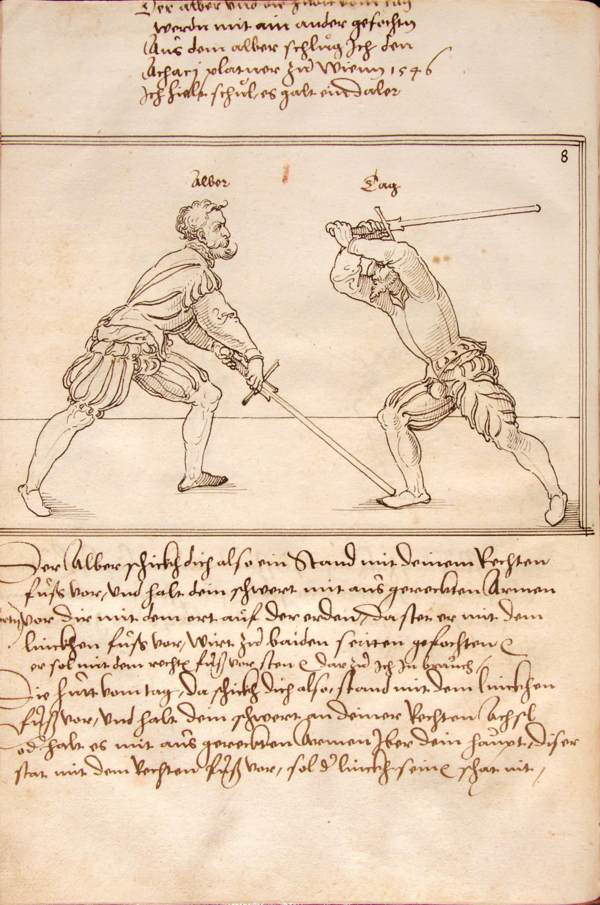 Der alber vnd die huet vom tag
werdn mit ain ander gefochtn
Aus dem alber schlug Ich den
Achaci platner zu Wienn 1546
Ich hielt schul, es galt ein daler
8
Alber
Tag
Der Alber schickh dich also ein Stand mit deinem Rechten
fuss vor, vnd halt dein schwert mit ausgereckten Armen
vor dir mit dem ort auf der erden, da stet er mit dem
linckhen fuss vor, wirt zu baiden seiten gefochten
er sol mit dem rechtn fuss vor sten dar zu Ich In brauch
Die hutt vom tag, da schickh dich also, stand mit dem linckhen
fuss vor, vnd halt dein schwert an deiner Rechten Achsl
od halt es mit ausgereckten Armen Iber dein haupt, diser
stat mit dem Rechten fuss vor, sol d linckh sein schat nit,